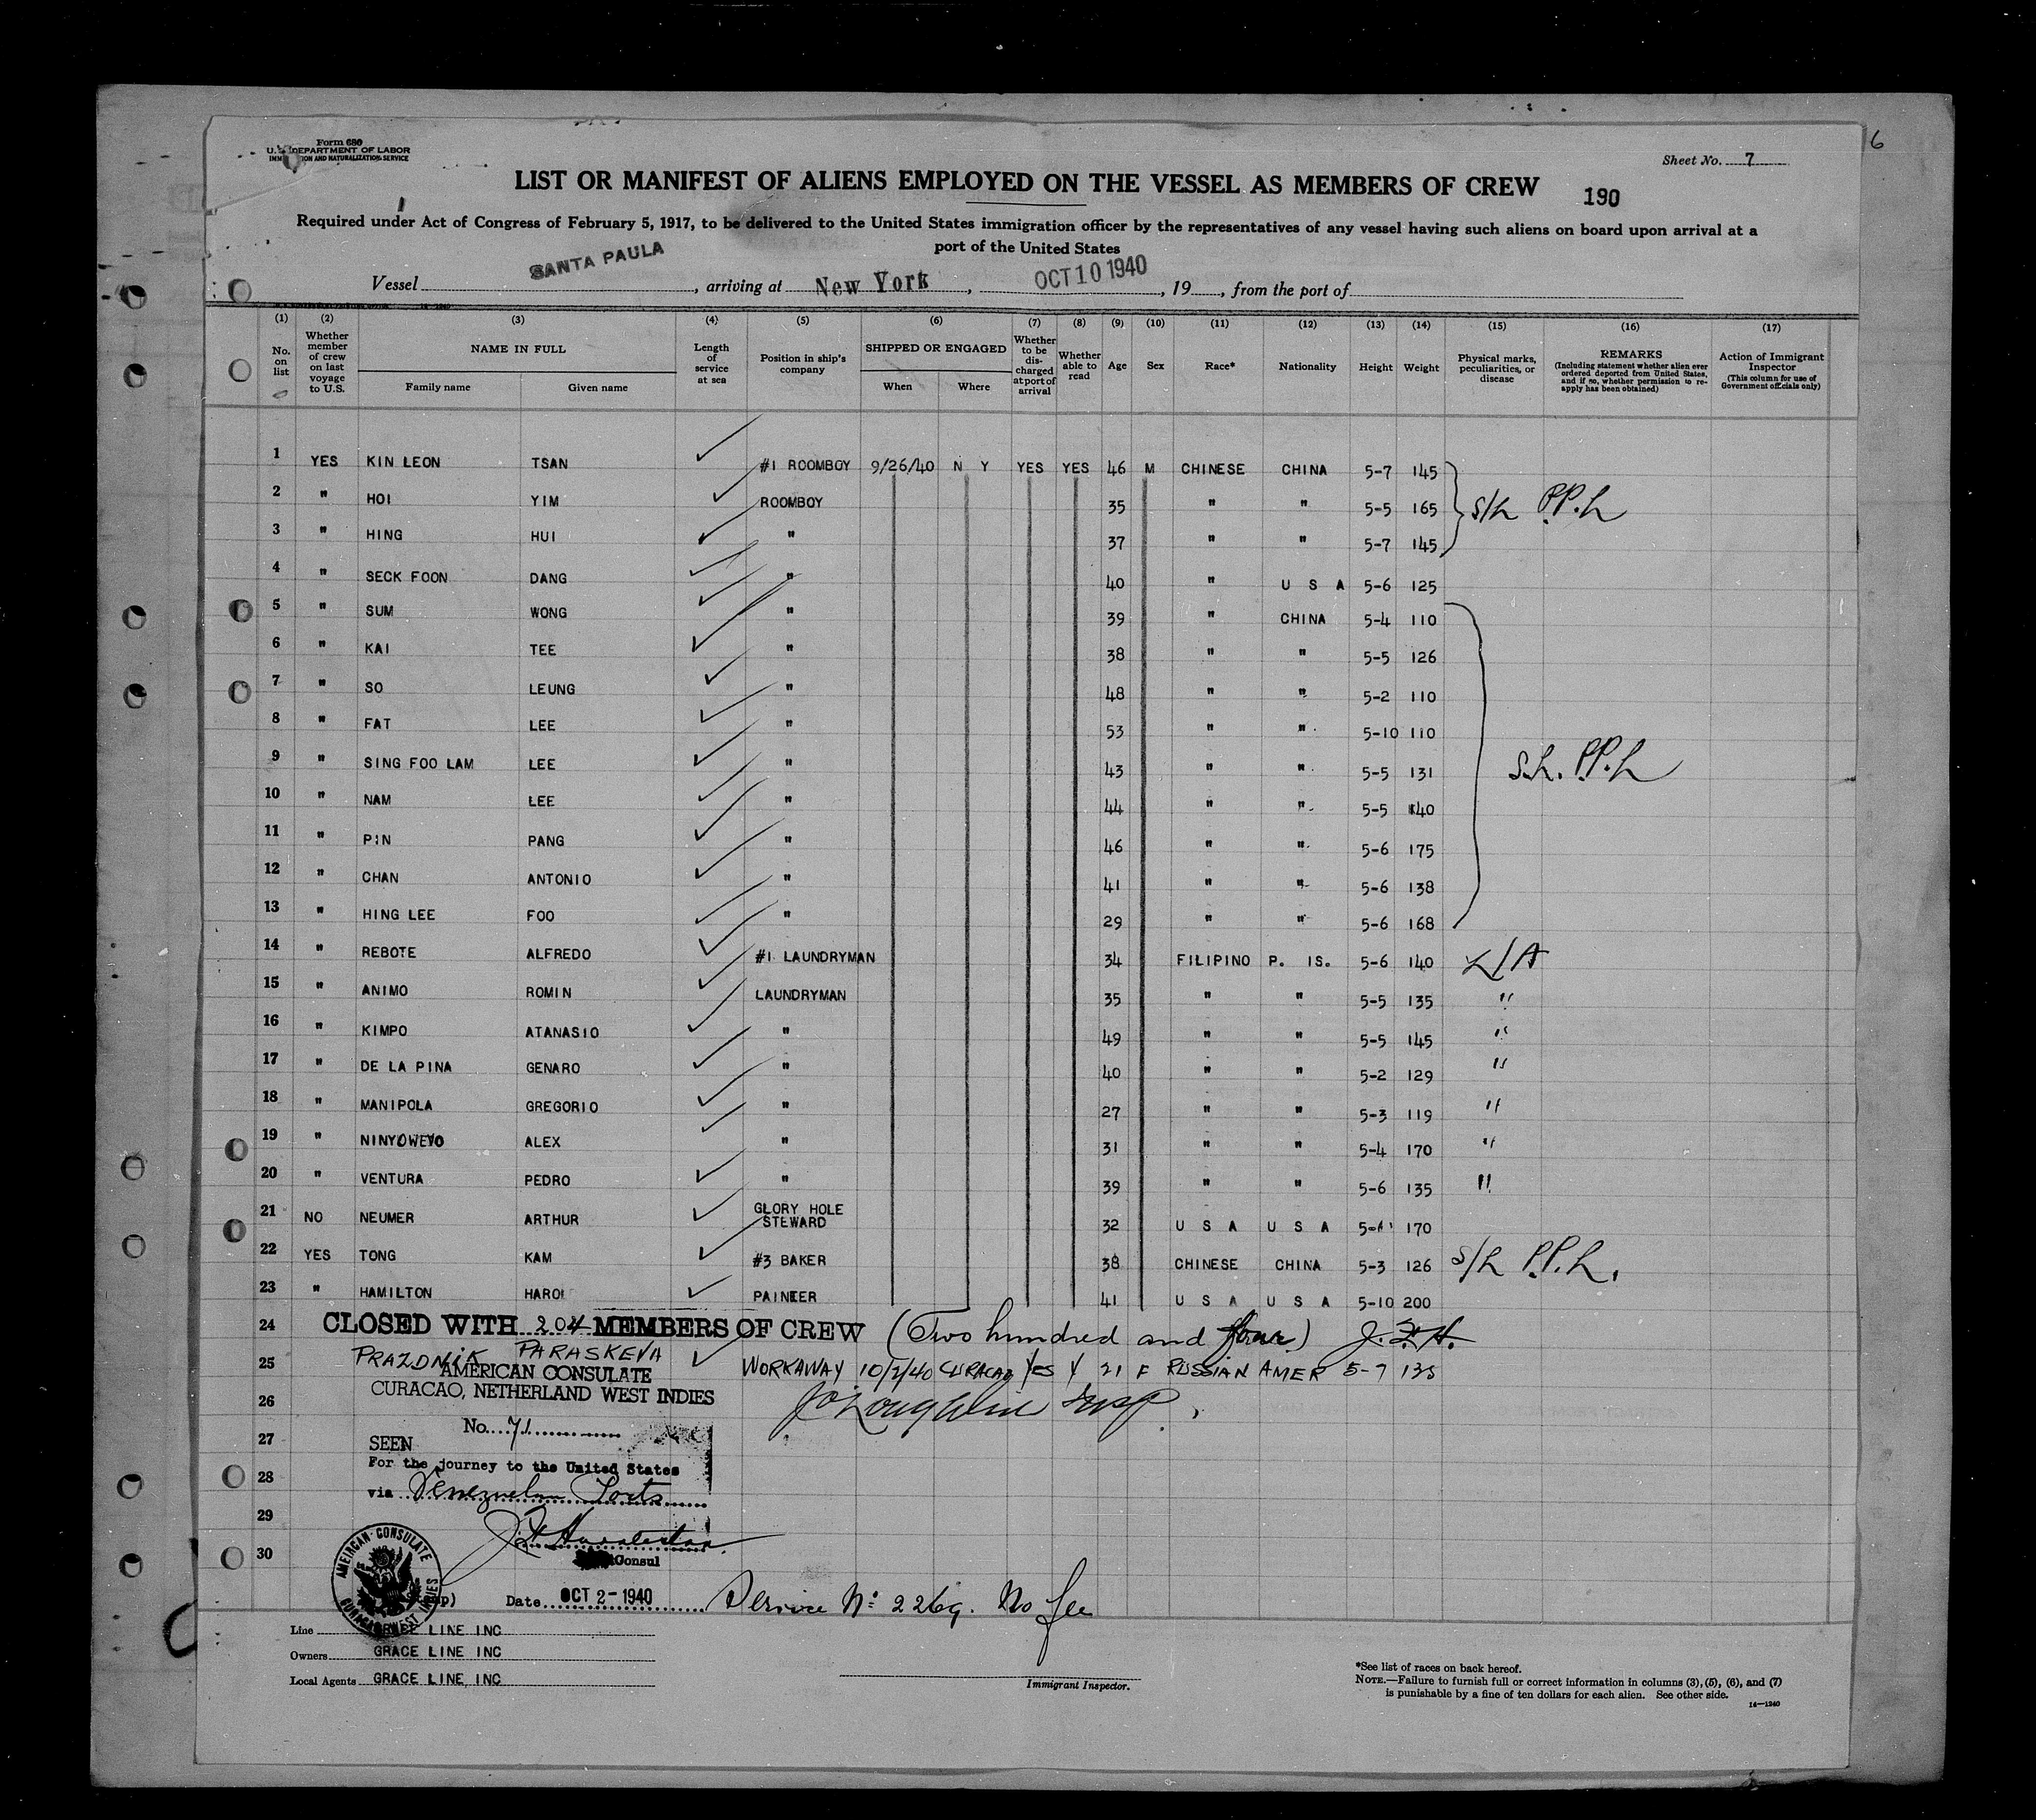 6
Form 680
U. S. DEPARTMENT OF LABOR
IMMIGRATION AND NATURALIZATION SERVICE
Sheet No. 7
LIST OR MANIFEST OF ALIENS EMPLOYED ON THE VESSEL AS MEMBERS OF CREW
190
Required under Act of Congress of February 5, 1917, to be delivered to the United States immigration officer by the representatives of any vessel having such aliens on board upon arrival at a
port of the United States
Vessel SANTA PAULA, arriving at New York, OCT 10 1940, 19, from the port of
(1) (2) (3) (4) (5) (6) (7) (8) (9) (10) (11) (12) (13) (14) (15) (16) (17)
No. on list
Whether member of crew on last voyage to U.S.
NAME IN FULL
Family name Given name
Length of service at sea
Position in ship's company
SHIPPED OR ENGAGED
When Where
Whether to be discharged at port of arrival
Whether able to read
Age
Sex
Race*
Nationality
Height
Weight
Physical marks, peculiarities, or disease
REMARKS
(Including statement whether alien ever ordered deported from United States, and if so, whether permission to re-apply has been obtained)
Action of Immigrant Inspector
(This column for use of Government officials only)
1 YES KIN LEON TSAN #1 ROOMBOY 9/26/40 N Y YES YES 46 M CHINESE CHINA 5-7 145
2 " HOI YIM ROOMBOY 35 " " 5-5 165 S/L P.P.L
3 " HING HUI " 37 " " 5-7 145
4 " SECK FOON DANG " 40 " U S A 5-6 125
5 " SUM WONG " 39 " CHINA 5-4 110
6 " KAI TEE " 38 " " 5-5 126
7 " SO LEUNG " 48 " " 5-2 110
8 " FAT LEE " 53 " " 5-10 110
9 " SING FOO LAM LEE " 43 " " 5-5 131 S.L. P.P.L
10 " NAM LEE " 44 " " 5-5 140
11 " PIN PANG " 46 " " 5-6 175
12 " CHAN ANTONIO " 41 " " 5-6 138
13 " HING LEE FOO " 29 " " 5-6 168
14 " REBOTE ALFREDO #1 LAUNDRYMAN 34 FILIPINO P. IS. 5-6 140 L/A
15 " ANIMO ROMIN LAUNDRYMAN 35 " " 5-5 135 "
16 " KIMPO ATANASIO " 49 " " 5-5 145 "
17 " DE LA PINA GENARO " 40 " " 5-2 129 "
18 " MANIPOLA GREGORIO " 27 " " 5-3 119 "
19 " ALEX " 31 " " 5-4 170 "
20 " VENTURA PEDRO " 39 " " 5-6 135 "
21 NO NEUMER ARTHUR GLORY HOLE STEWARD 32 U S A U S A 170
22 YES TONG KAM #3 BAKER 38 CHINESE CHINA 5-3 126 S/L P.P.L.
23 " HAMILTON PAINTER 41 U S A U S A 5-10 200
24 CLOSED WITH 204 MEMBERS OF CREW (Two hundred and four) J.F.H.
25 PRAZDNIK PARASKEVA WORKAWAY 10/2/40 CURACAO YES Y 21 F RUSSIAN AMER 5-7 135
AMERICAN CONSULATE
CURACAO, NETHERLAND WEST INDIES
26
No. 71
27
SEEN
For the journey to the United States
28
via Venezuelan Ports
29
30
Consul
AMERICAN CONSULATE
CURACAO, WEST INDIES
Date OCT 2-1940 Service Nº 2269. No fee
Line GRACE LINE INC
Owners GRACE LINE INC
Local Agents GRACE LINE INC
Immigrant Inspector.
*See list of races on back hereof.
NOTE.—Failure to furnish full or correct information in columns (3), (5), (6), and (7)
is punishable by a fine of ten dollars for each alien. See other side.
14—1240